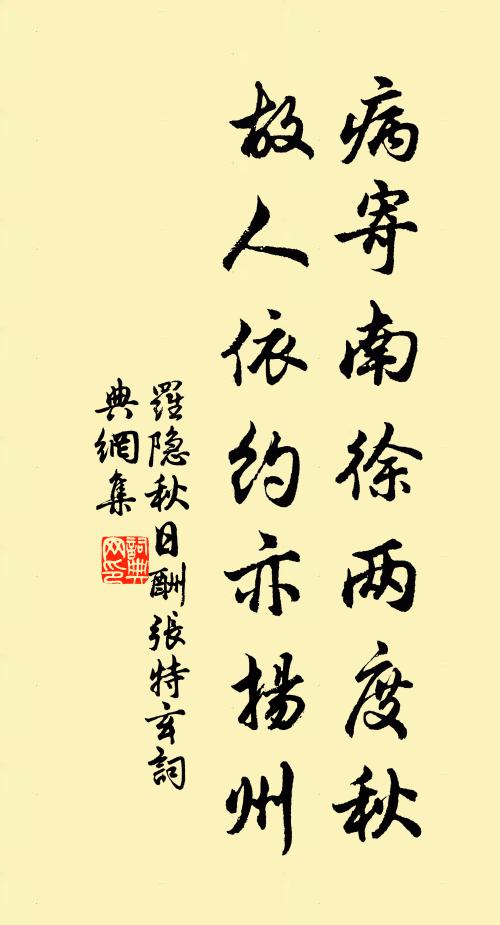 病寄南徐两度秋
故人依约亦揚州
羅隐秋日酬張特玄詞
典網集
詞典
网印